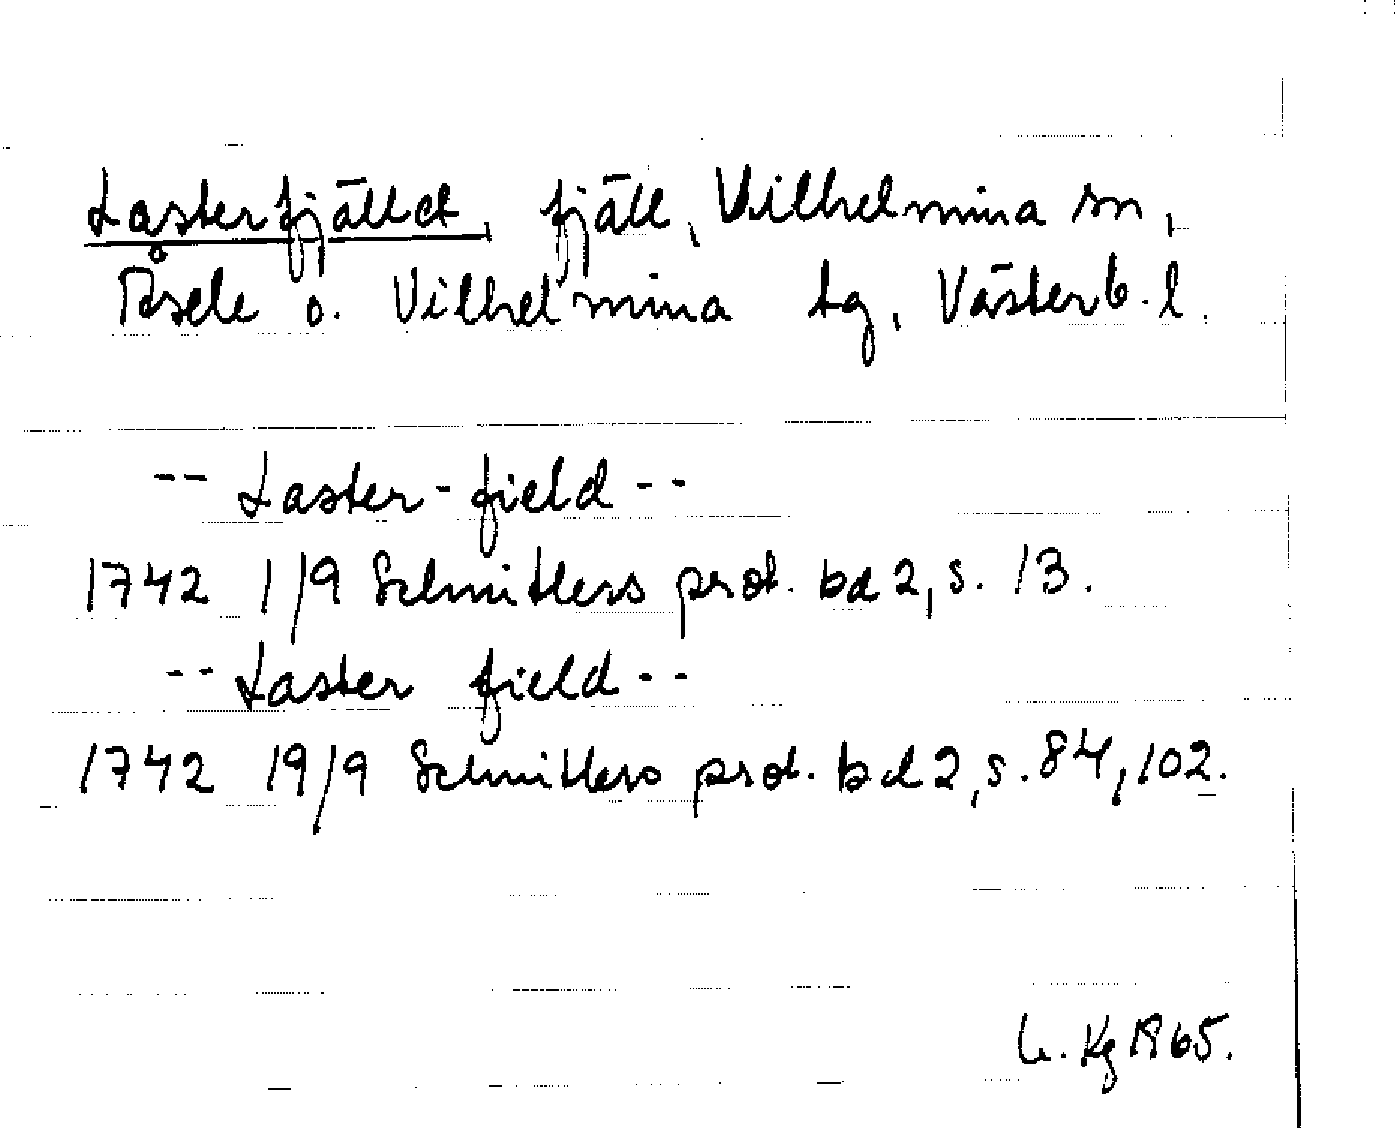 Lasterfjället, fjäll, Vilhelmina sn,
Åsele o. Vilhelmina tg, Västerb. l.
-- Laster-field --
1742 1/9 Schnitlers prot. bd 2, s. 13.
-- Laster field --
1742 19/9 Schnitlers prot. bd 2, s. 84, 102.
Kg 1965.